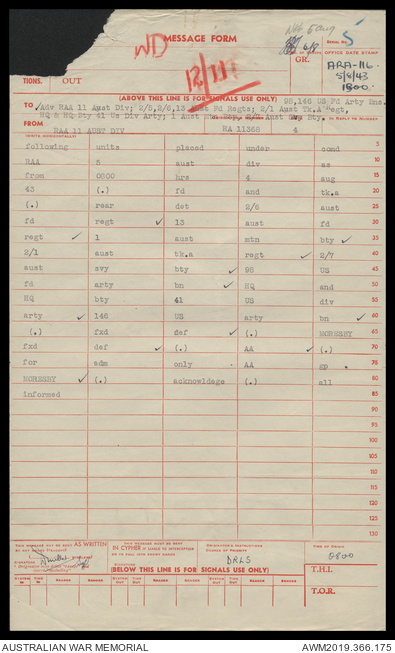 WD
MESSAGE FORM
SERIAL No. 5
OFFICE DATE STAMP
GR.
ARA-116
5/8/43
1800.
12/111
TIONS.
OUT
(ABOVE THIS LINE IS FOR SIGNALS USE ONLY)
98,146 US Fd Arty Bns.
TO Adv RAA 11 Aust Div; 2/5,2/6,13 Aust Fd Regts; 2/1 Aust Tk.A Regt,
HQ & HQ Bty 41 US Div Arty; 1 Aust Bty. IN REPLY TO NUMBER
FROM
RAA 11 AUST DIV
RA 11368
4
following units placed under comd 5
RAA 5 aust div as 10
from 0800 hrs 4 aug 15
43 (.) fd and tk.a 20
(.) rear det 2/6 aust 25
fd regt ✓ 13 aust fd 30
regt ✓ 1 aust mtn bty ✓ 35
2/1 aust tk.a regt ✓ 2/7 40
aust svy bty ✓ 98 US 45
fd arty bn ✓ HQ and 50
HQ bty 41 US div 55
arty ✓ 146 US arty bn ✓ 60
(.) fxd def ✓ (.) MORESBY 65
fxd def ✓ (.) AA ✓ (.) 70
for adm only AA RP 75
MORESBY ✓ (.) acknowledge (.) all 80
informed 85
90
95
100
105
110
115
120
125
130
THIS MESSAGE MAY BE SENT AS WRITTEN
BY ANY MEANS
SIGNATURE
THIS MESSAGE MUST BE SENT
IN CYPHER IF LIABLE TO INTERCEPTION
SIGNATURE
ORIGINATOR'S INSTRUCTIONS
DEGREE OF PRIORITY
DRLS
TIME OF ORIGIN
0800
(BELOW THIS LINE IS FOR SIGNALS USE ONLY)
T.H.I.
T.O.R.
AUSTRALIAN WAR MEMORIAL
AWM2019.366.175